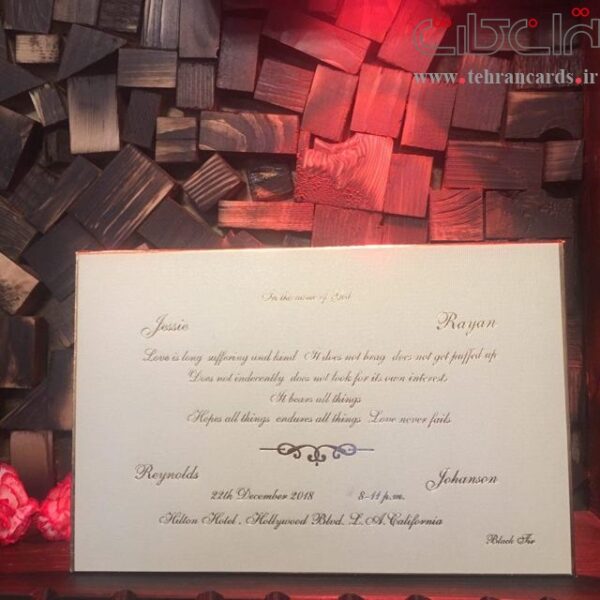 تهران کارت
www.tehrancards.ir
In the name of God
Jessie Rayan
Love is long suffering and kind It does not brag does not get puffed up
Does not indecently does not look for its own interest
It bears all things
Hopes all things endures all things Love never fails
Reynolds Johanson
22th December 2018 8-11 p.m.
Hilton Hotel, Hollywood Blvd. L.A. California
Black Tie